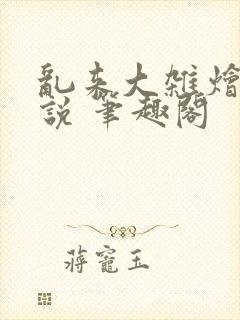 亂来大雜燴
說 筆趣閣
蔣寵玉